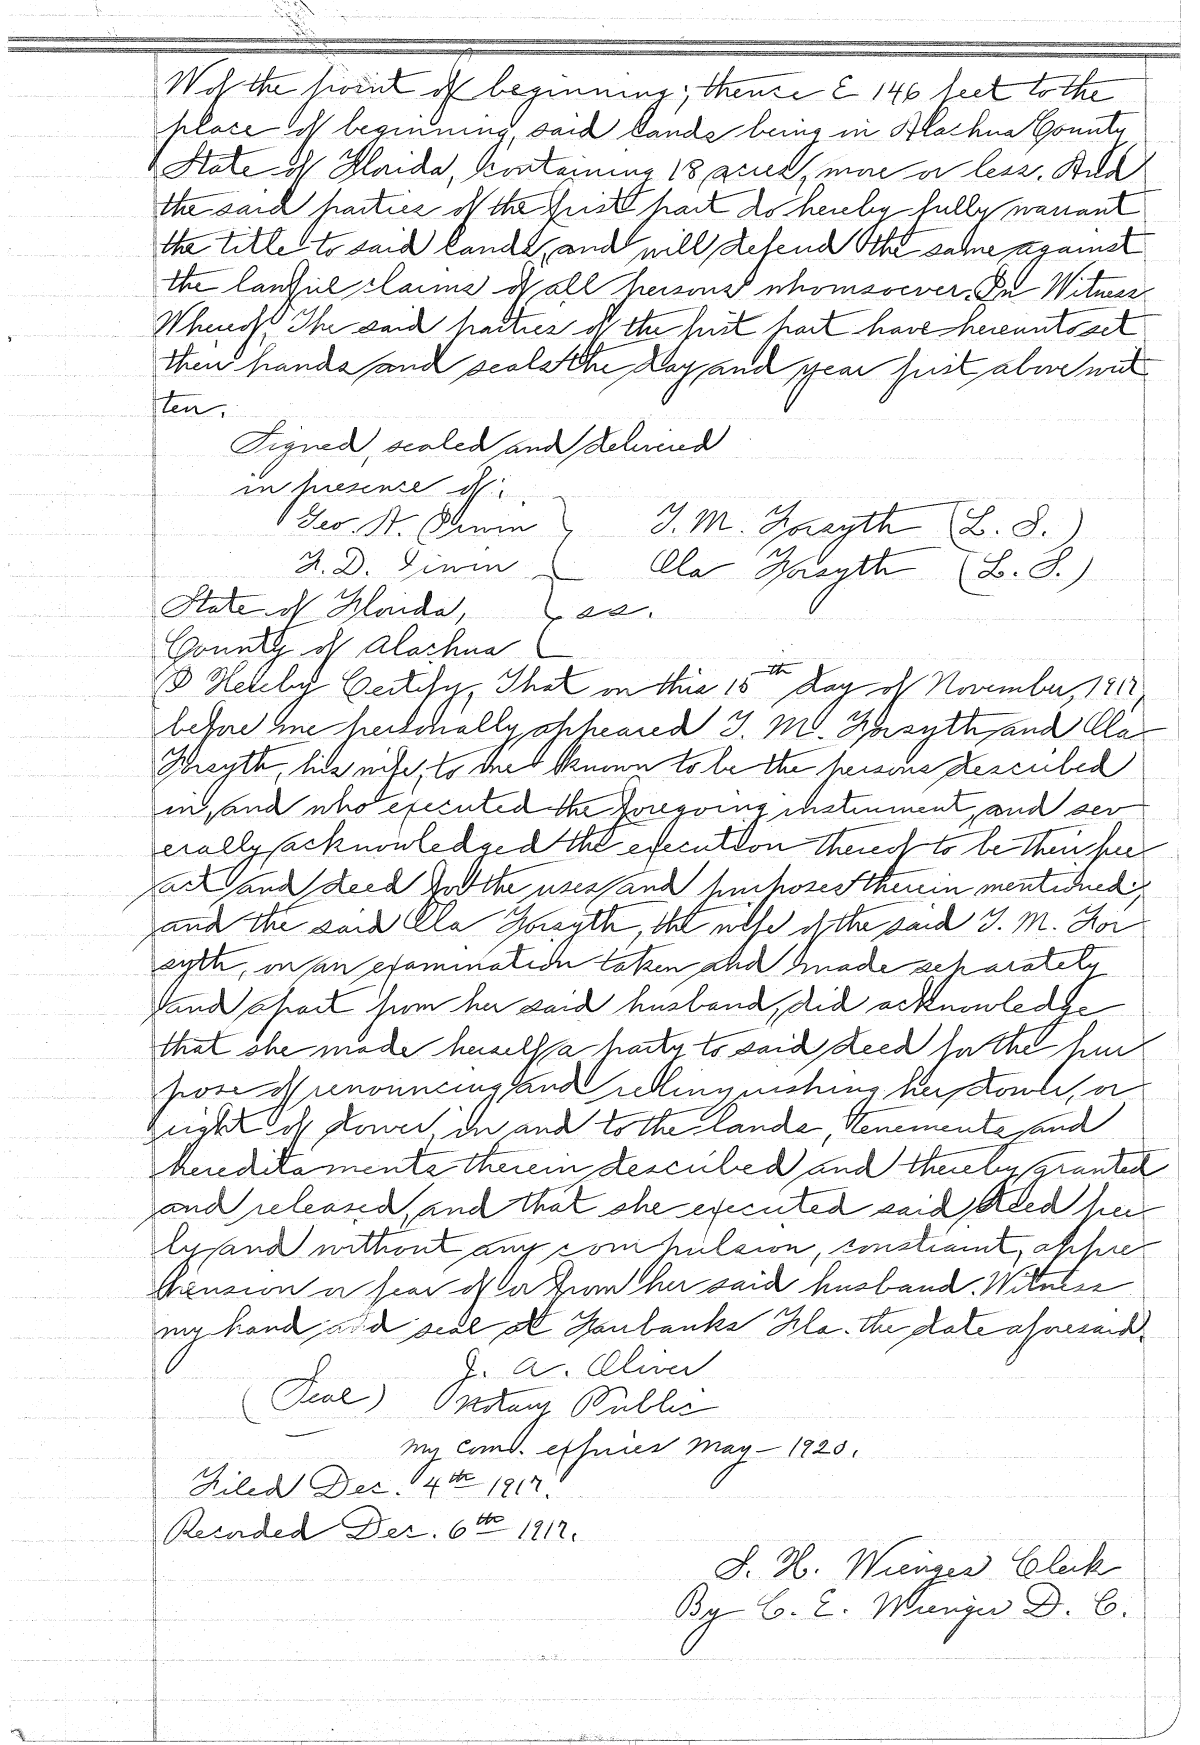 W of the point of beginning; thence E 146 feet to the
place of beginning, said lands being in Alachua County,
State of Florida, containing 18 acres, more or less. And
the said parties of the first part do hereby fully warrant
the title to said lands, and will defend the same against
the lawful claims of all persons whomsoever. In Witness
Whereof, The said parties of the first part have hereunto set
their hands and seals the day and year first above writ
ten.
Signed, sealed and delivered
in presence of:
Geo. A. Irwin } T. M. Forsyth (L. S.)
F. D. Irwin } Ola Forsyth (L. S.)
State of Florida, } ss.
County of Alachua
I Hereby Certify, That on this 15th day of November, 1917,
before me personally appeared T. M. Forsyth and Ola
Forsyth, his wife, to me known to be the persons described
in, and who executed the foregoing instrument, and sev
erally acknowledged the execution thereof to be their free
act and deed for the uses and purposes therein mentioned;
and the said Ola Forsyth, the wife of the said T. M. For
syth, on an examination taken and made separately
and apart from her said husband, did acknowledge
that she made herself a party to said deed for the pur
pose of renouncing and relinquishing her dower, or
right of dower, in and to the lands, tenements and
hereditaments therein described and thereby granted
and released, and that she executed said deed free
ly and without any compulsion, constraint, appre
hension or fear of or from her said husband. Witness
my hand and seal at Fairbanks Fla. the date aforesaid.
J. A. Oliver
(Seal) Notary Public
My Com. expires May - 1920.
Filed Dec. 4th 1917.
Recorded Dec. 6th 1917.
S. H. Wienges Clerk
By C. E. Wienges D. C.